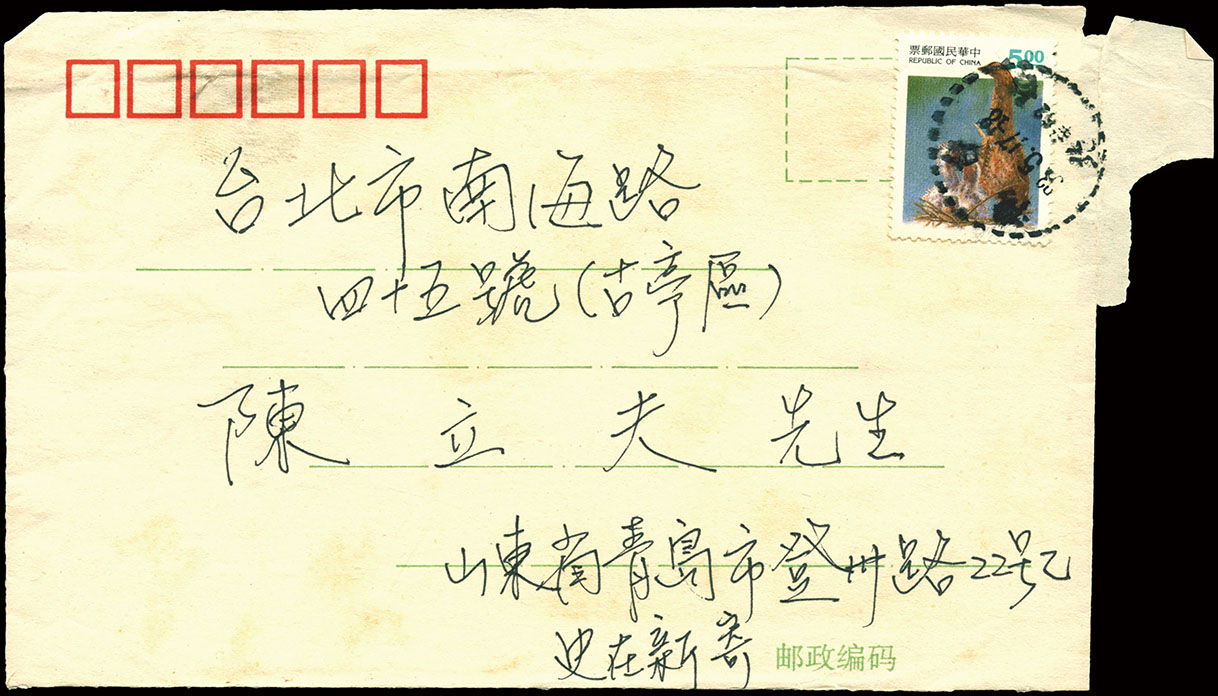 中華民國郵票
REPUBLIC OF CHINA
5.00
台北市南海路
四十五號(古亭區)
陳立夫先生
山東省青島市登州路22号乙
史在新寄
邮政编码